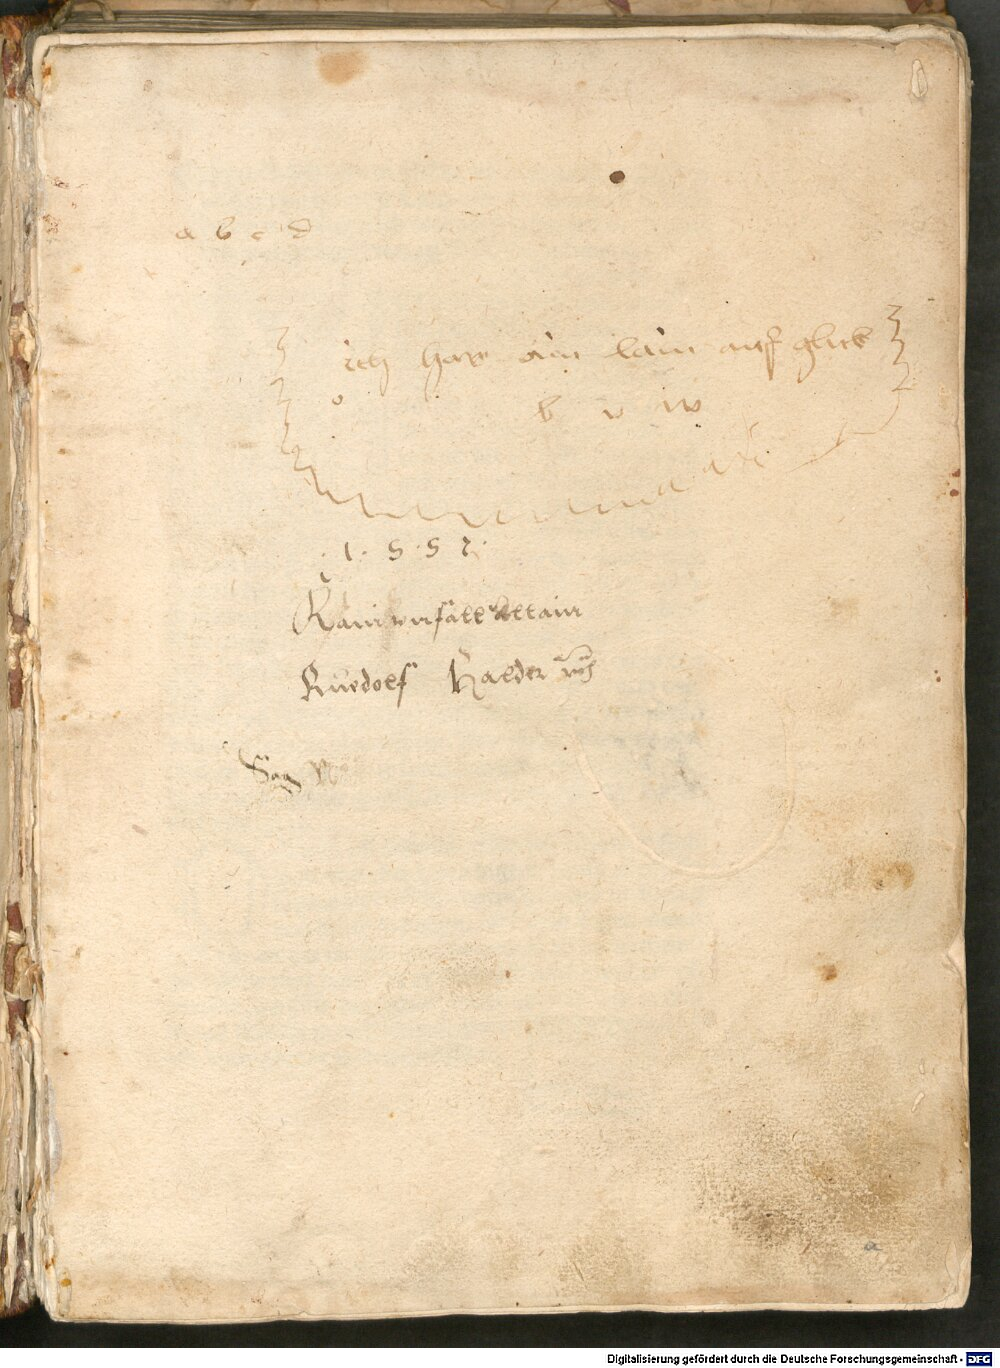 a b c d
ich har ain lain auf glick
o b v w
.1.5.5.7.
Kain unfall allain
Ruedolf Halder
Sag
a
Digitalisierung gefördert durch die Deutsche Forschungsgemeinschaft - DFG